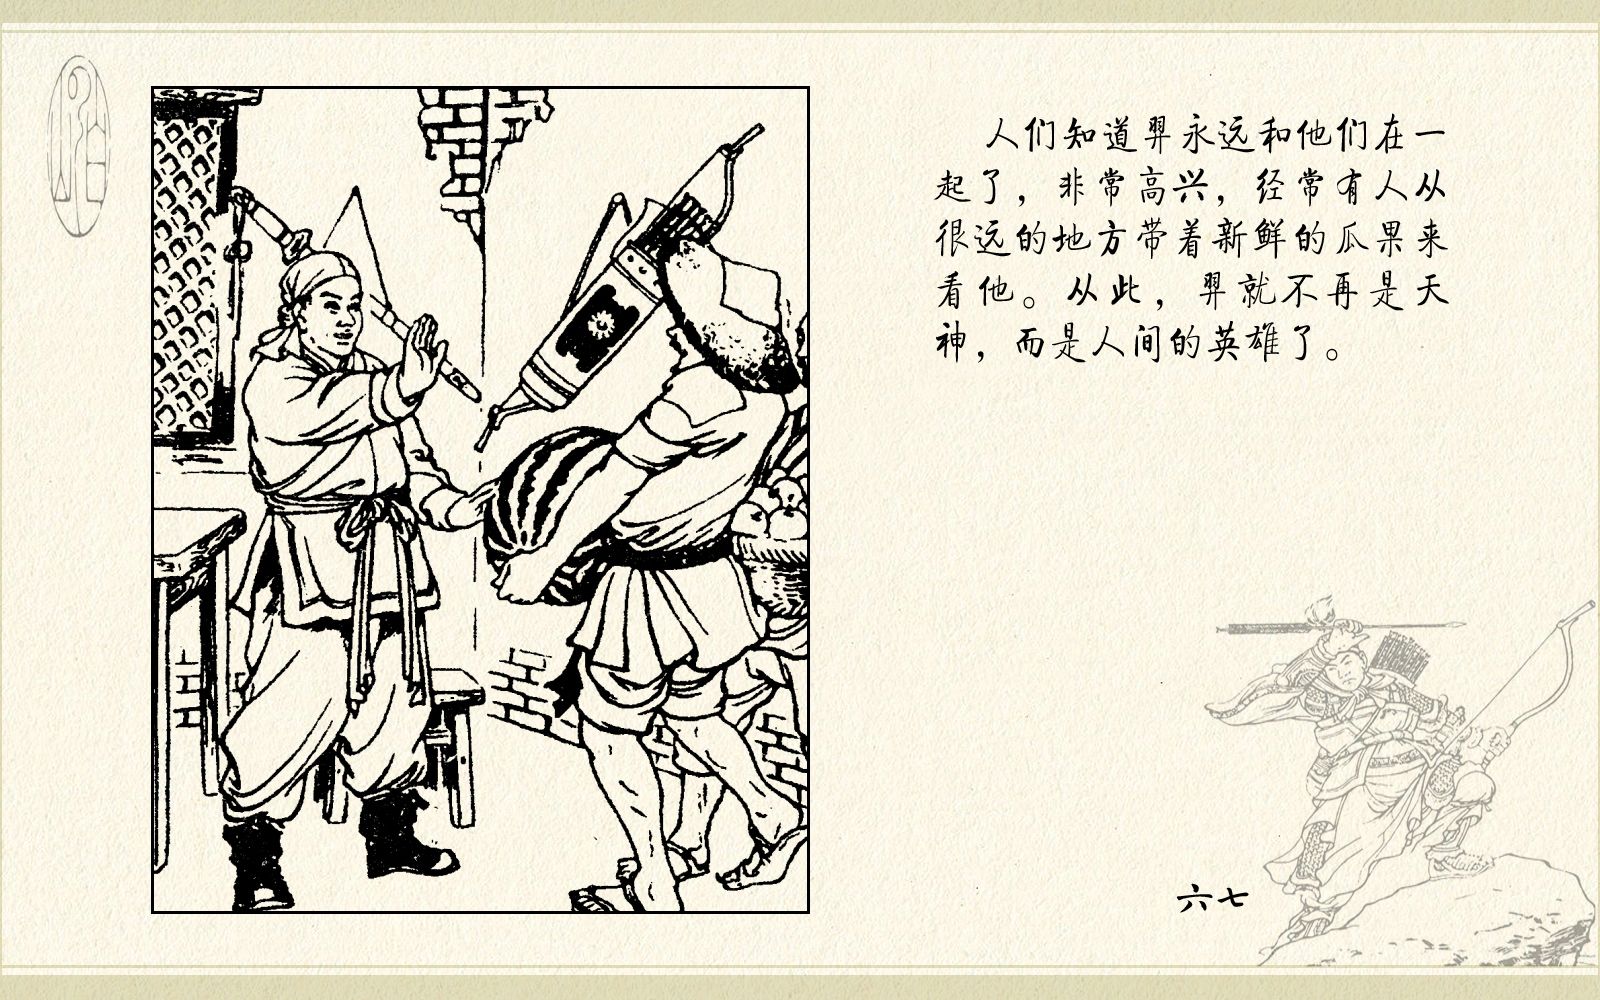 人们知道羿永远和他们在一
起了，非常高兴，经常有人从
很远的地方带着新鲜的瓜果来
看他。从此，羿就不再是天
神，而是人间的英雄了。
六七